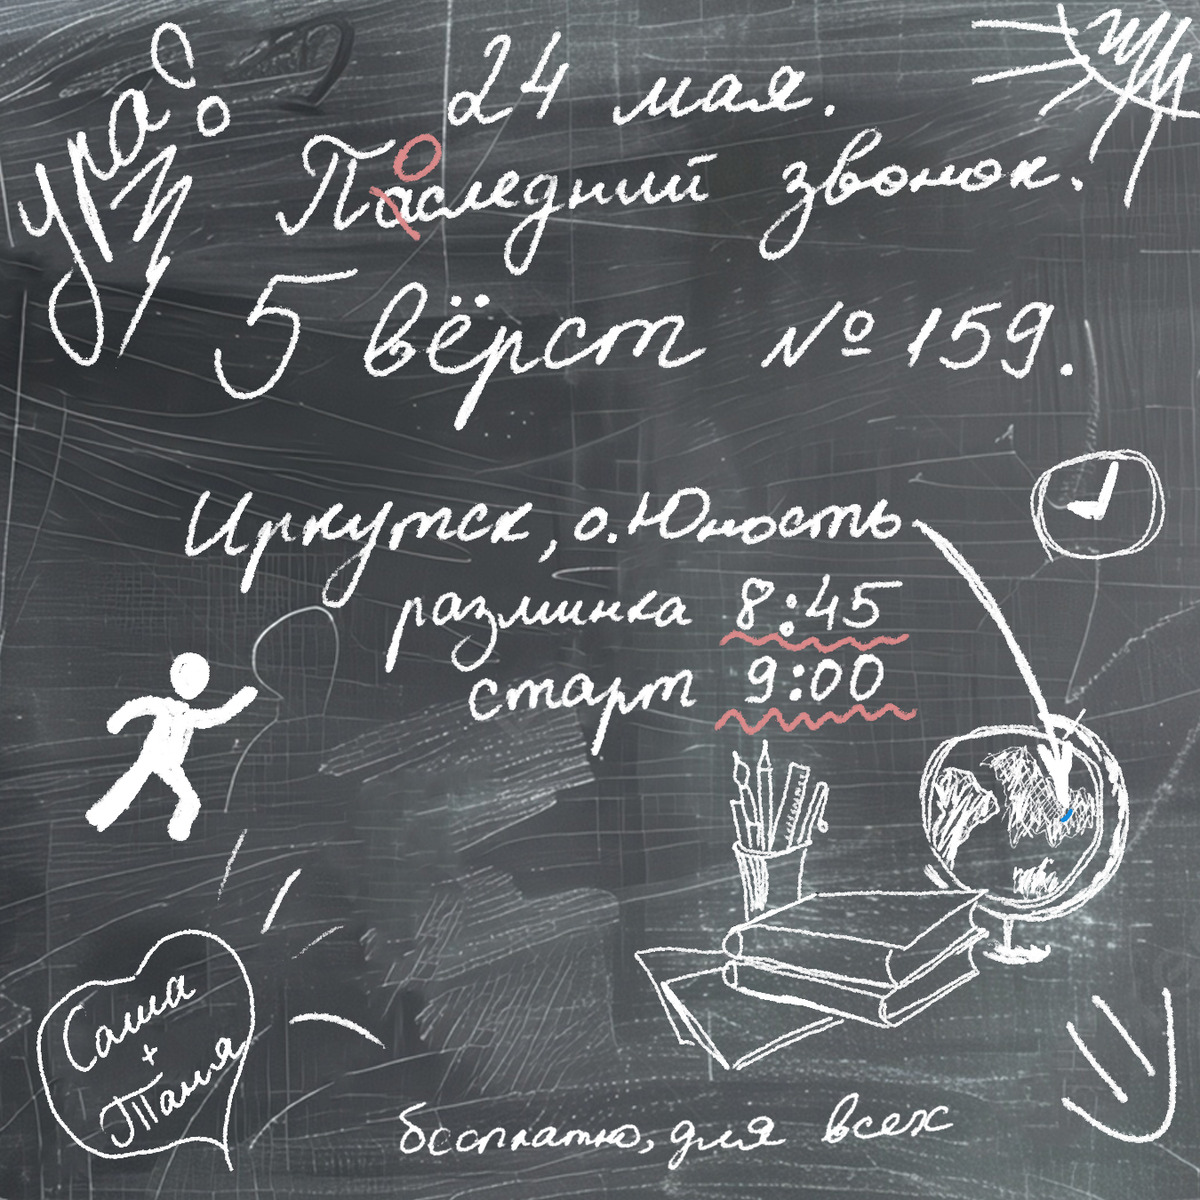 Ура!
24 мая.
Паоследний звонок!
5 вёрст №159.
Иркутск, о.Юность
разминка 8:45
старт 9:00
Саша
+
Таня
бесплатно, для всех